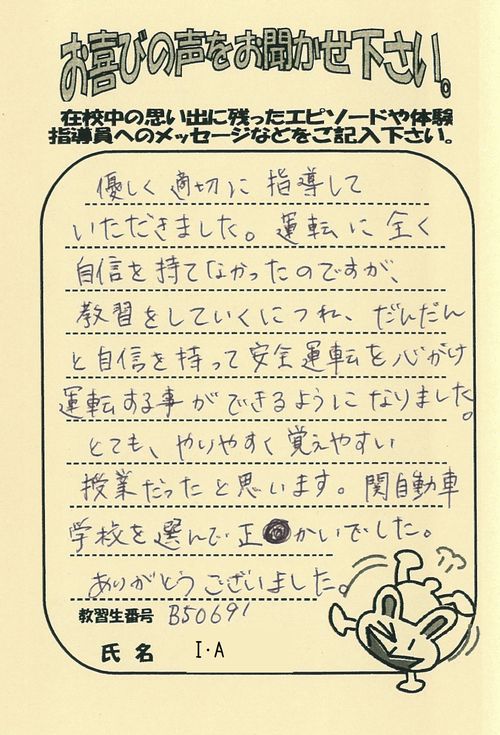 お喜びの声をお聞かせ下さい。
在校中の思い出に残ったエピソードや体験
指導員へのメッセージなどをご記入下さい。
優しく適切に指導して
いただきました。運転に全く
自信を持てなかったのですが、
教習をしていくにつれ、だんだん
と自信を持って安全運転を心がけ
運転する事ができるようになりました。
とても、やりやすく覚えやすい
授業だったと思います。関自動車
学校を選んで正かいでした。
ありがとうございました。
教習生番号 B50691
氏名 I・A